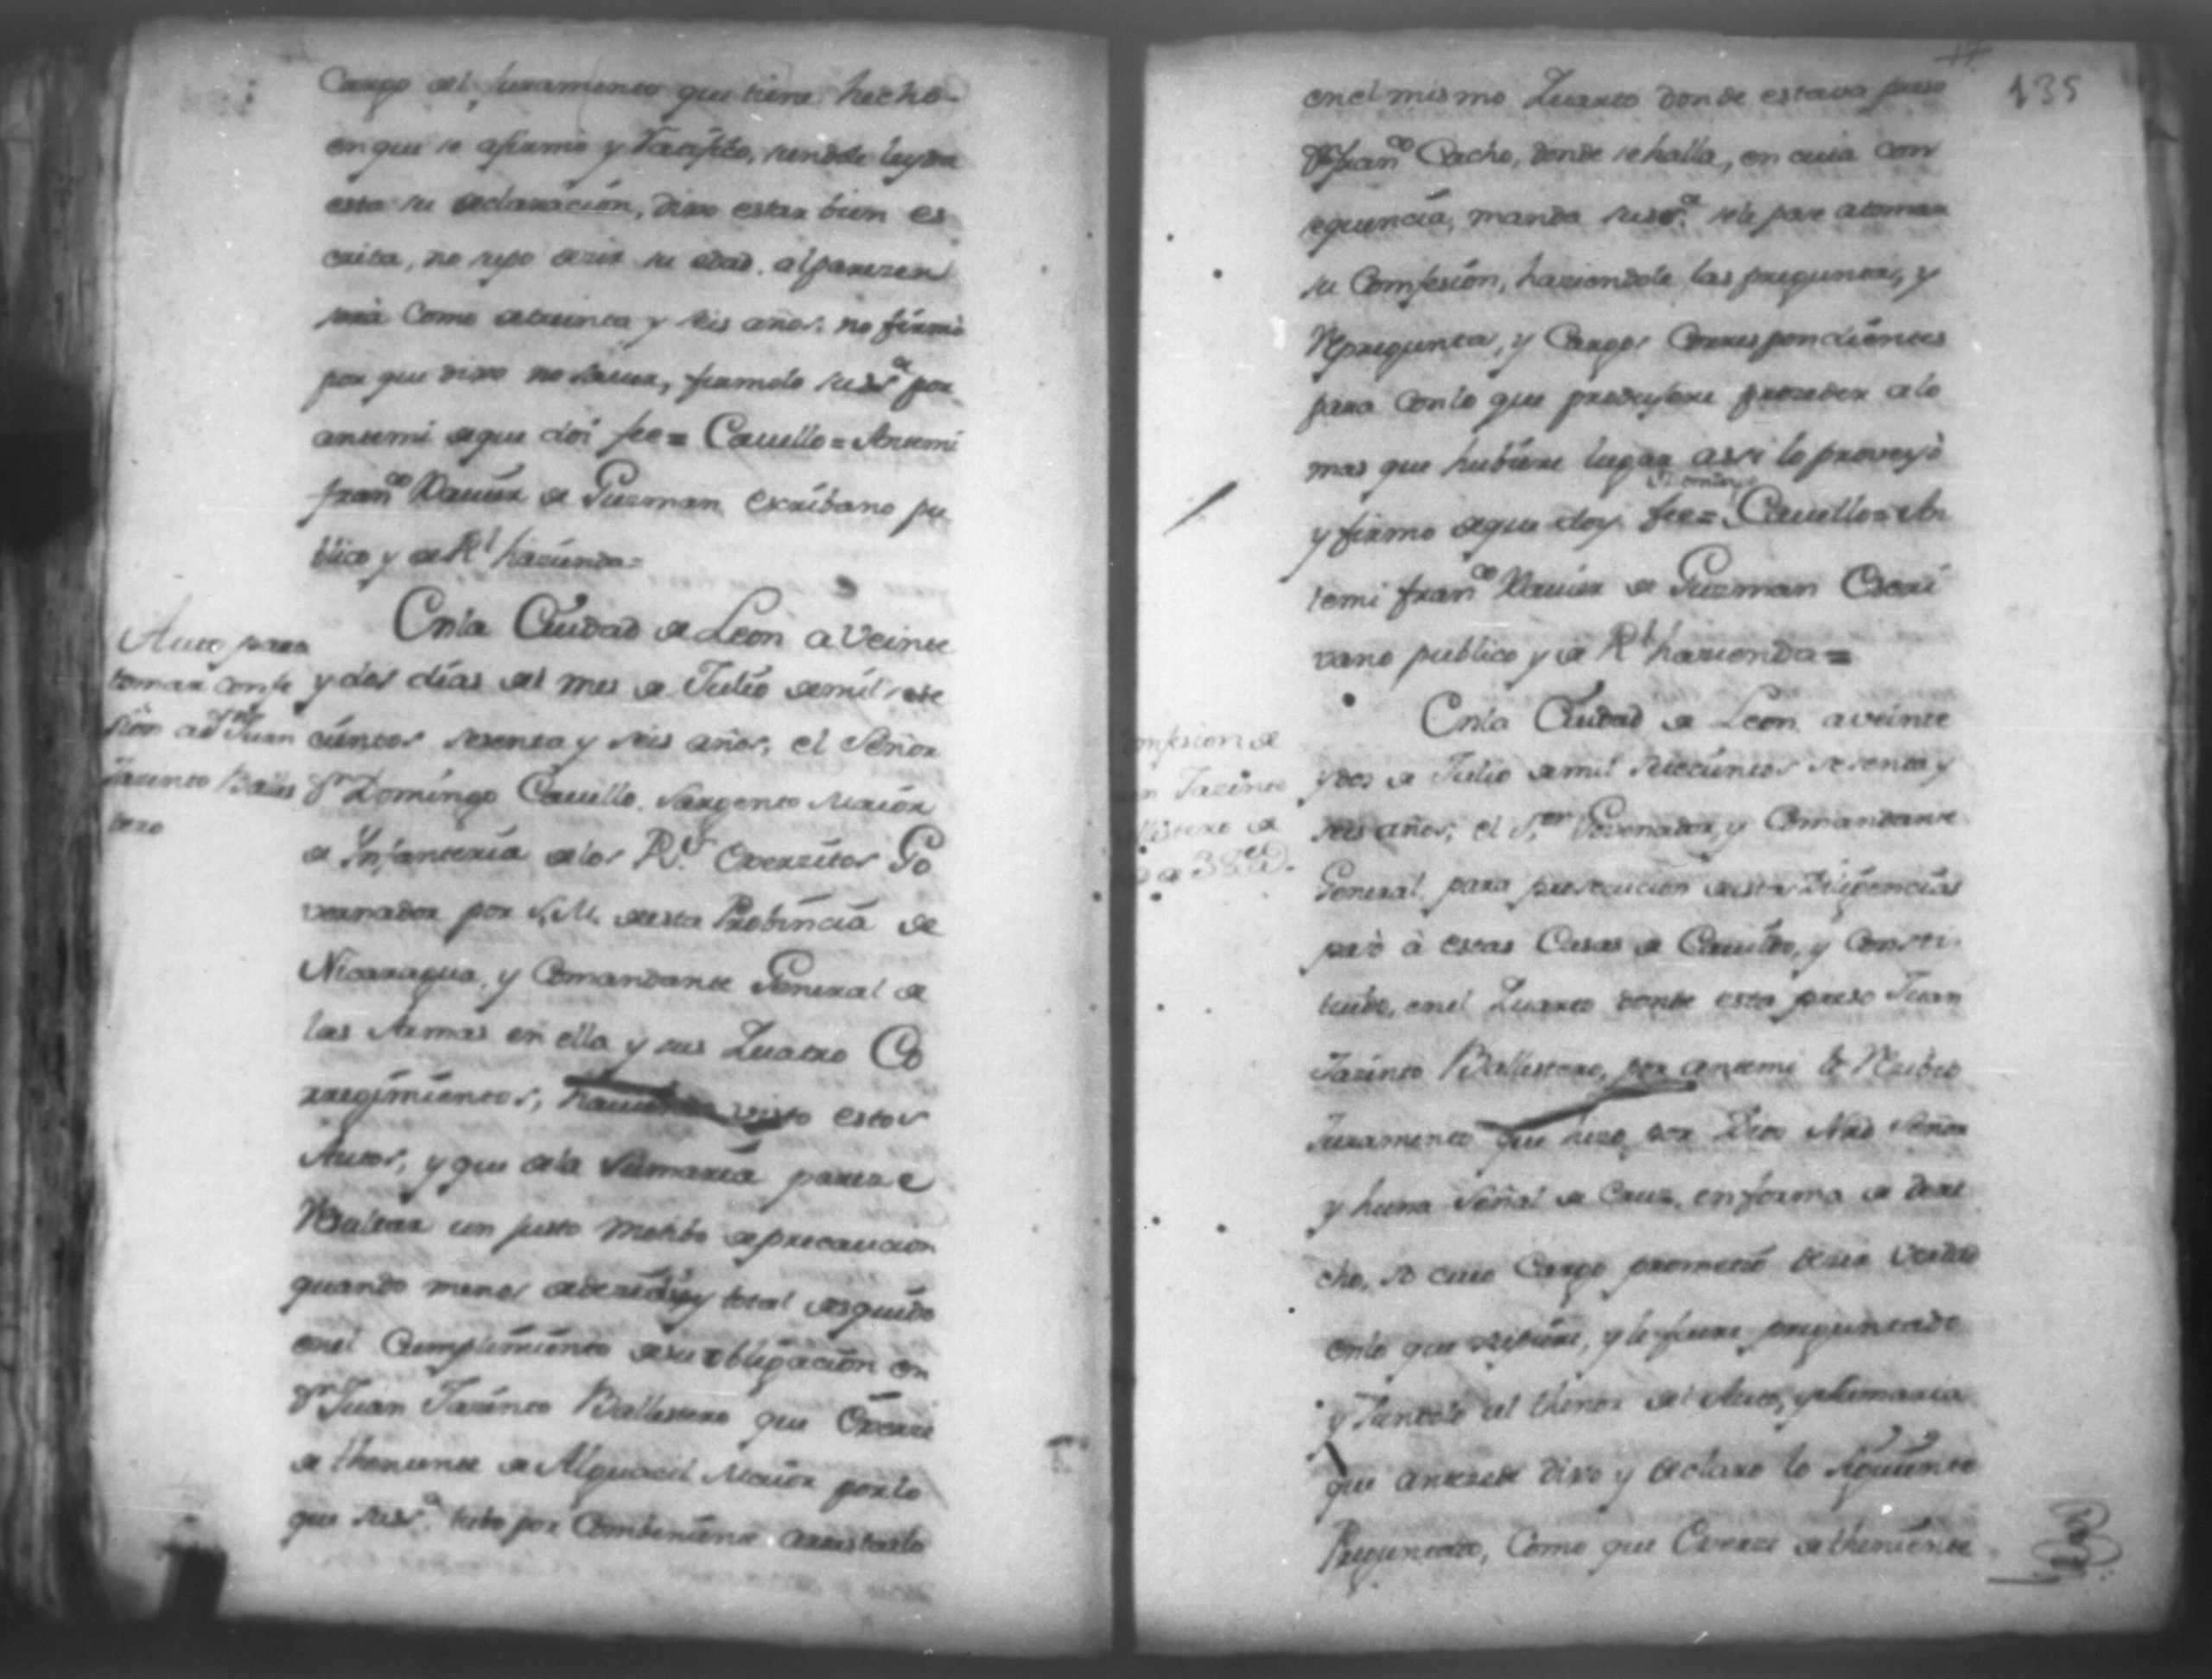 Cargo del Juramento que tiene hecho
en que se afirmó y Ratificó, siendole leyda
esta su declaración, dixo estar bien es
crita, no supo dezir su edad, al parezer
será como de treinta y seis años, no firmó
por que dixo no saver, firmolo su sª por
antemi de que doi fee = Cauello = Antemi
franco Xauier de Guzman escribano pu
blico y de Rl hazienda =
Auto para
tomar confe
sion a Dn Juan
Jazinto Balles
tero
Enla Ciudad de Leon a Veinte
y dos días del mes de Julio de mil sete
cientos sesenta y seis años, el Señor
Dn Domingo Cauello, Sargento Maior
de Ynfanteria delos Rs Exerzitos Go
vernador por S.M. desta Probincia de
Nicaragua, y Comandante General de
las Armas en ella y sus Quatro Co
rregimientos, haviendo visto estos
Autos, y que dela Sumaria pareze
Resultar un justo motibo de precaucion
quando menos de desidia y total descuido
enel Cumplimiento de su obligación en
Dn Juan Jazinto Ballestero que Exerze
de theniente de Alguacil Maior por lo
que su sª tubo por Combeniente arrestarlo
135
enel mismo Quarto donde estava preso
Dn franco Cacho, donde se halla, en cuia con
sequencia, manda su sª se le pase a tomar
su Comfesión, haziendole las preguntas, y
Repregunta, y Cargos Correspondientes
para conlo que produxere prozeder a lo
mas que hubiere lugar assi lo proveyó
y firmo de que doy fee = Cauello = An
temi franco Xauier de Guzman Escri
vano publico y de Rl hazienda =
onfesion de
n Jazinto
llestero de
Enla Ciudad de Leon a veinte
y dos de Julio de mil setecientos sesenta y
seis años, el Sor Govenador, y Comandante
General, para prosecucion destas Diligencias
pasó á estas Casas de Cauildo, y Consti
tuido, enel Quarto donde esta preso Juan
Jazinto Ballestero, por antemi le Rezibio
Juramento que hizo por Dios Nro Señor
y huna Señal de Cruz, en forma de dere
cho, so cuio Cargo prometió dezir verdad
enlo que supiere, y le fuere preguntado
y siendolo al thenor del Auto, y sumaria
que antezede dixo y declaro lo siguiente
Preguntado, Como que Exerze de theniente